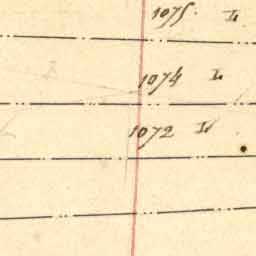 1075. I
1074 I
1072 I